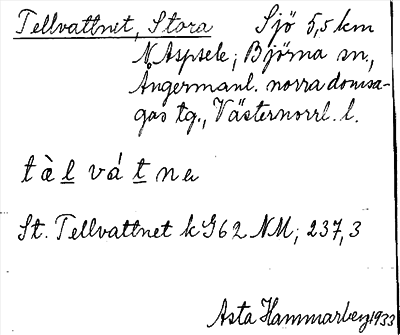 Tellvattnet, Stora Sjö 5,5 km
N Aspsele; Björna sn.,
Ångermanl. norra domsa-
gas tg., Västernorrl. l.
t à l v á t n e
St. Tellvattnet k G62 NM; 237,3
Asta Hammarberg 1933